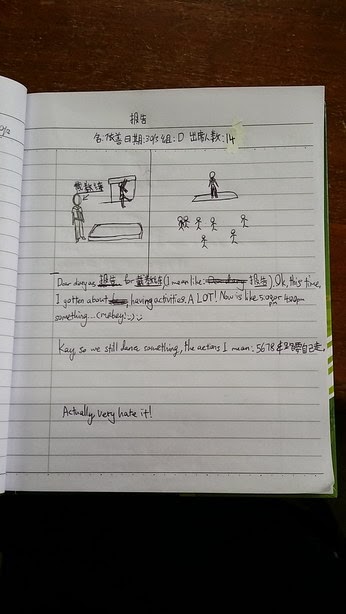 报告
名:依善 日期:30/5 组:D 出席人数:14
Dear diary as 报告 for 蔡教练 (I mean like: 报告). Ok, this time,
I gotten about having activities. A LOT! Now is like 5:00pm or 4:00pm
something...(maybe) :) :)
Kay so we still dance something, the actions I mean: 5678
自己走.
Actually very hate it!